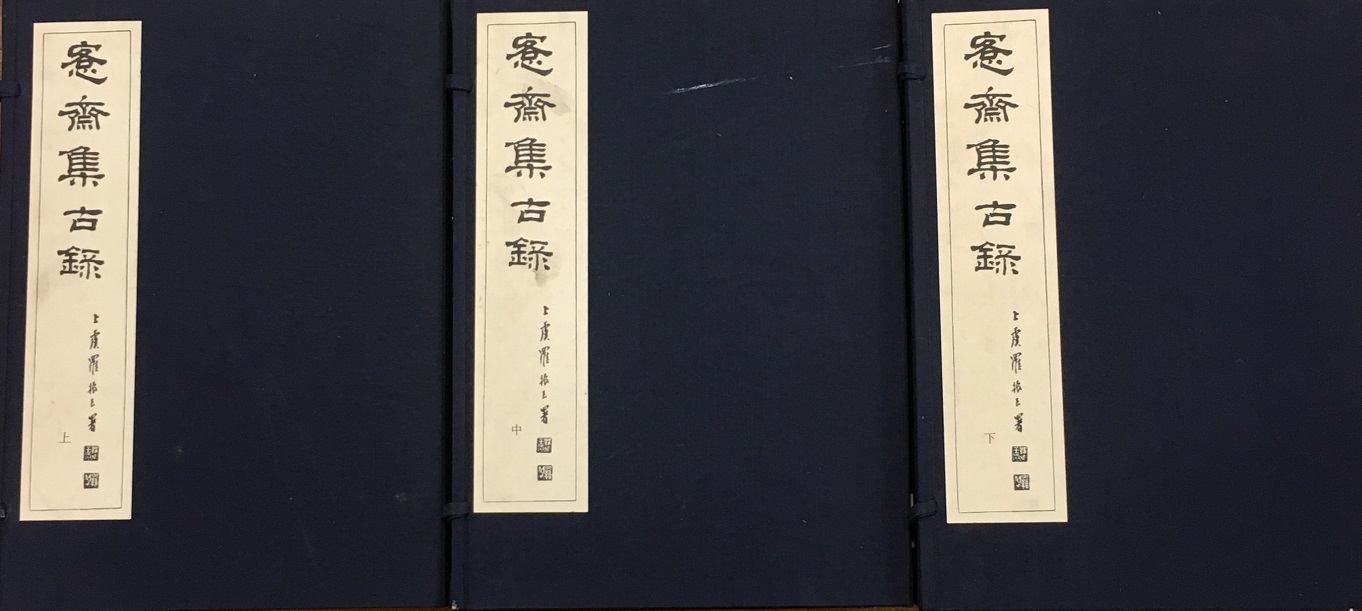 愙齋集古錄
上虞羅振玉署
上
愙齋集古錄
上虞羅振玉署
中
愙齋集古錄
上虞羅振玉署
下